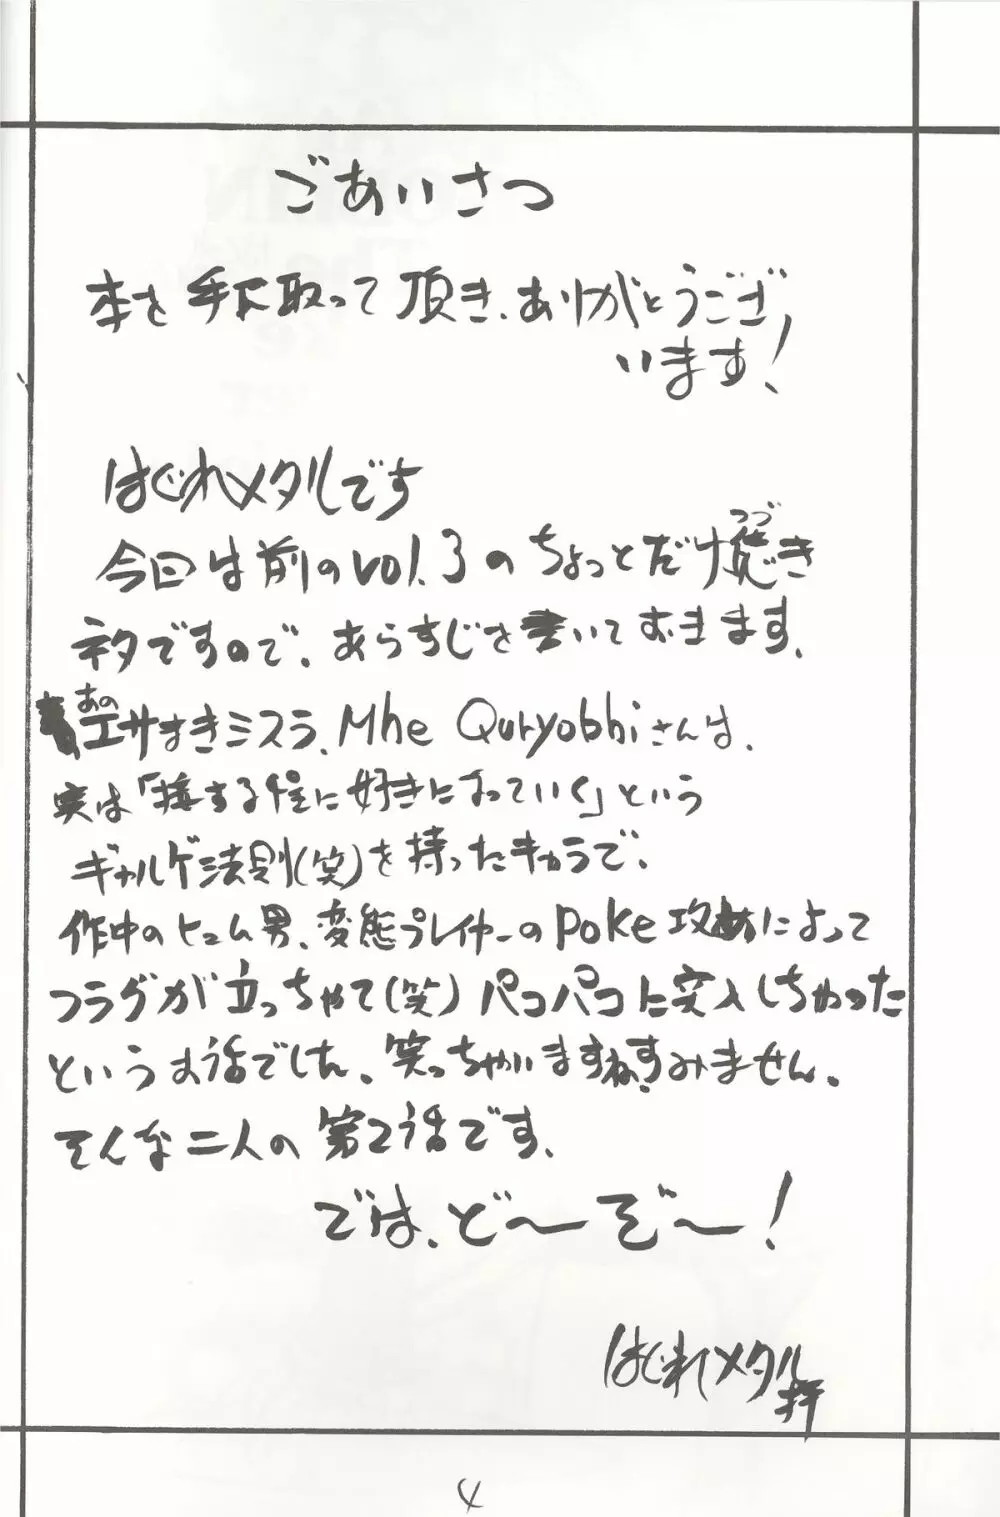 ごあいさつ
本を手に取って頂き、ありがとうござ
います!
はぐれメタルです
今回は前のvol.3のちょっとだけ続き
つづ
ネタですので、あらすじを書いておきます。
あの
エサまきミスラ、Mhe Quryobhiさんは、
実は「接する程に好きになっていく」という
ギャルゲ法則(笑)を持ったキャラで、
作中のヒュム男、変態プレイヤーのPoke攻めによって
フラグが立っちゃて(笑)パコパコに突入しちゃった
というお話でした。笑っちゃいますね。すみません。
そんな二人の第2話です。
では、ど〜ぞ〜!
はぐれメタル
拝
4